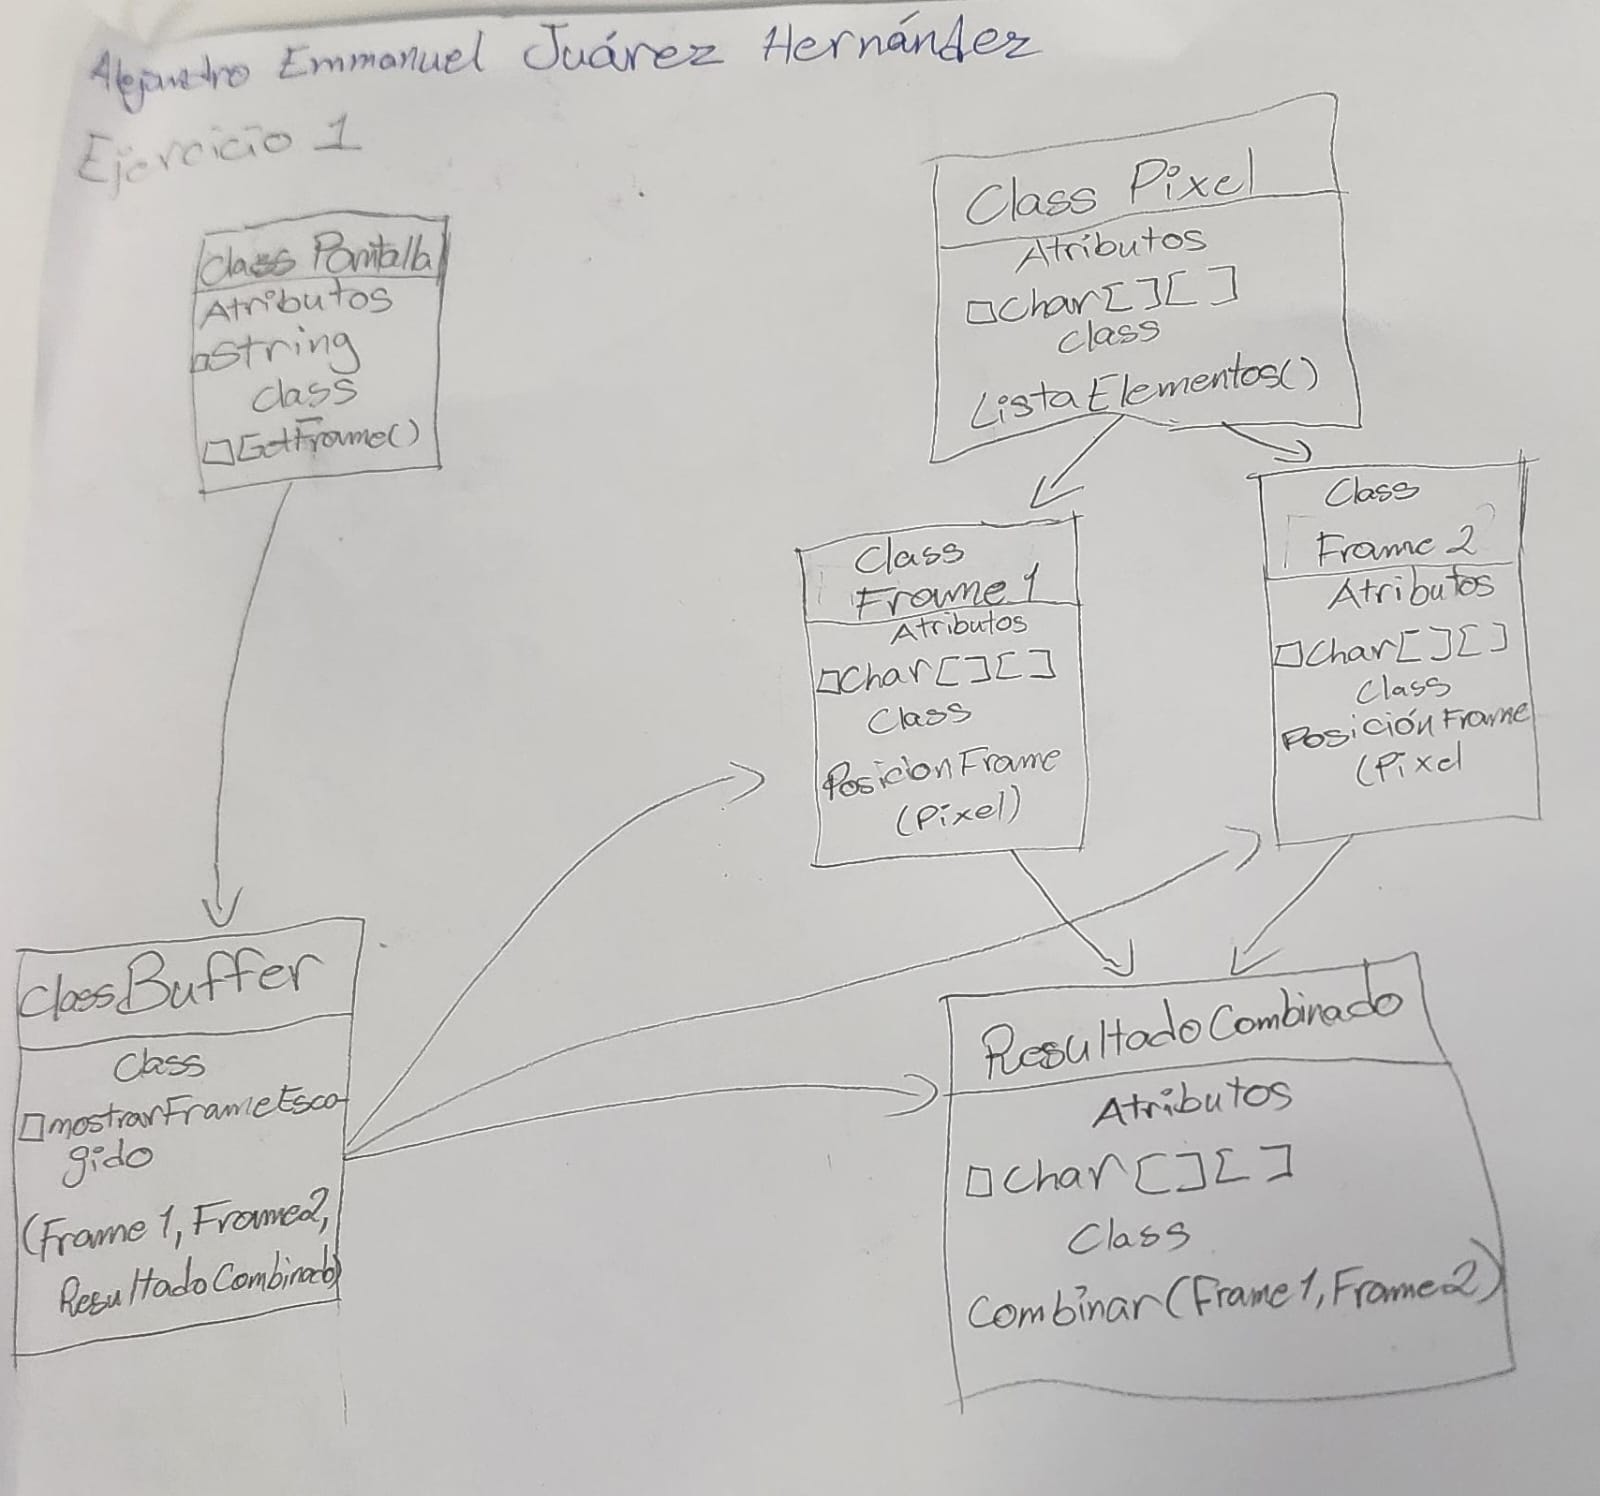 Alejandro Emmanuel Juárez Hernández
Ejercicio 1
Class Pantalla
Atributos
□String
class
□GetFrame()
Class Pixel
Atributos
□Char[][]
class
ListaElementos()
Class
Frame 1
Atributos
□Char[][]
Class
PosicionFrame
(Pixel)
Class
Frame 2
Atributos
□Char[][]
Class
PosiciónFrame
(Pixel
Class Buffer
Class
□mostrarFrameEsco-
gido
(Frame 1, Frame2,
ResultadoCombinado)
ResultadoCombinado
Atributos
□Char[][]
Class
Combinar(Frame1,Frame2)